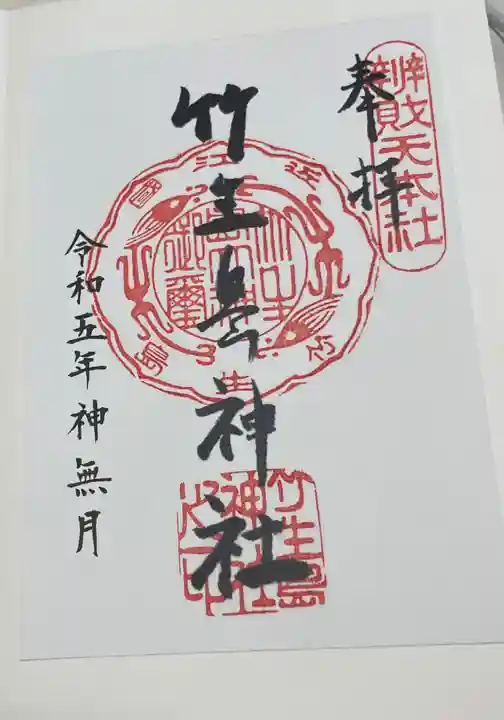 奉拝
辨財天本社
竹生島神社
竹生島
神社
之印
令和五年神無月